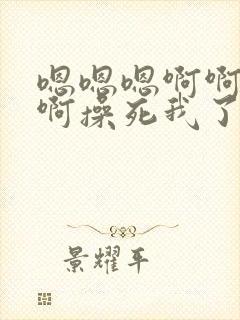 嗯嗯嗯啊啊
啊操死我了
景耀平